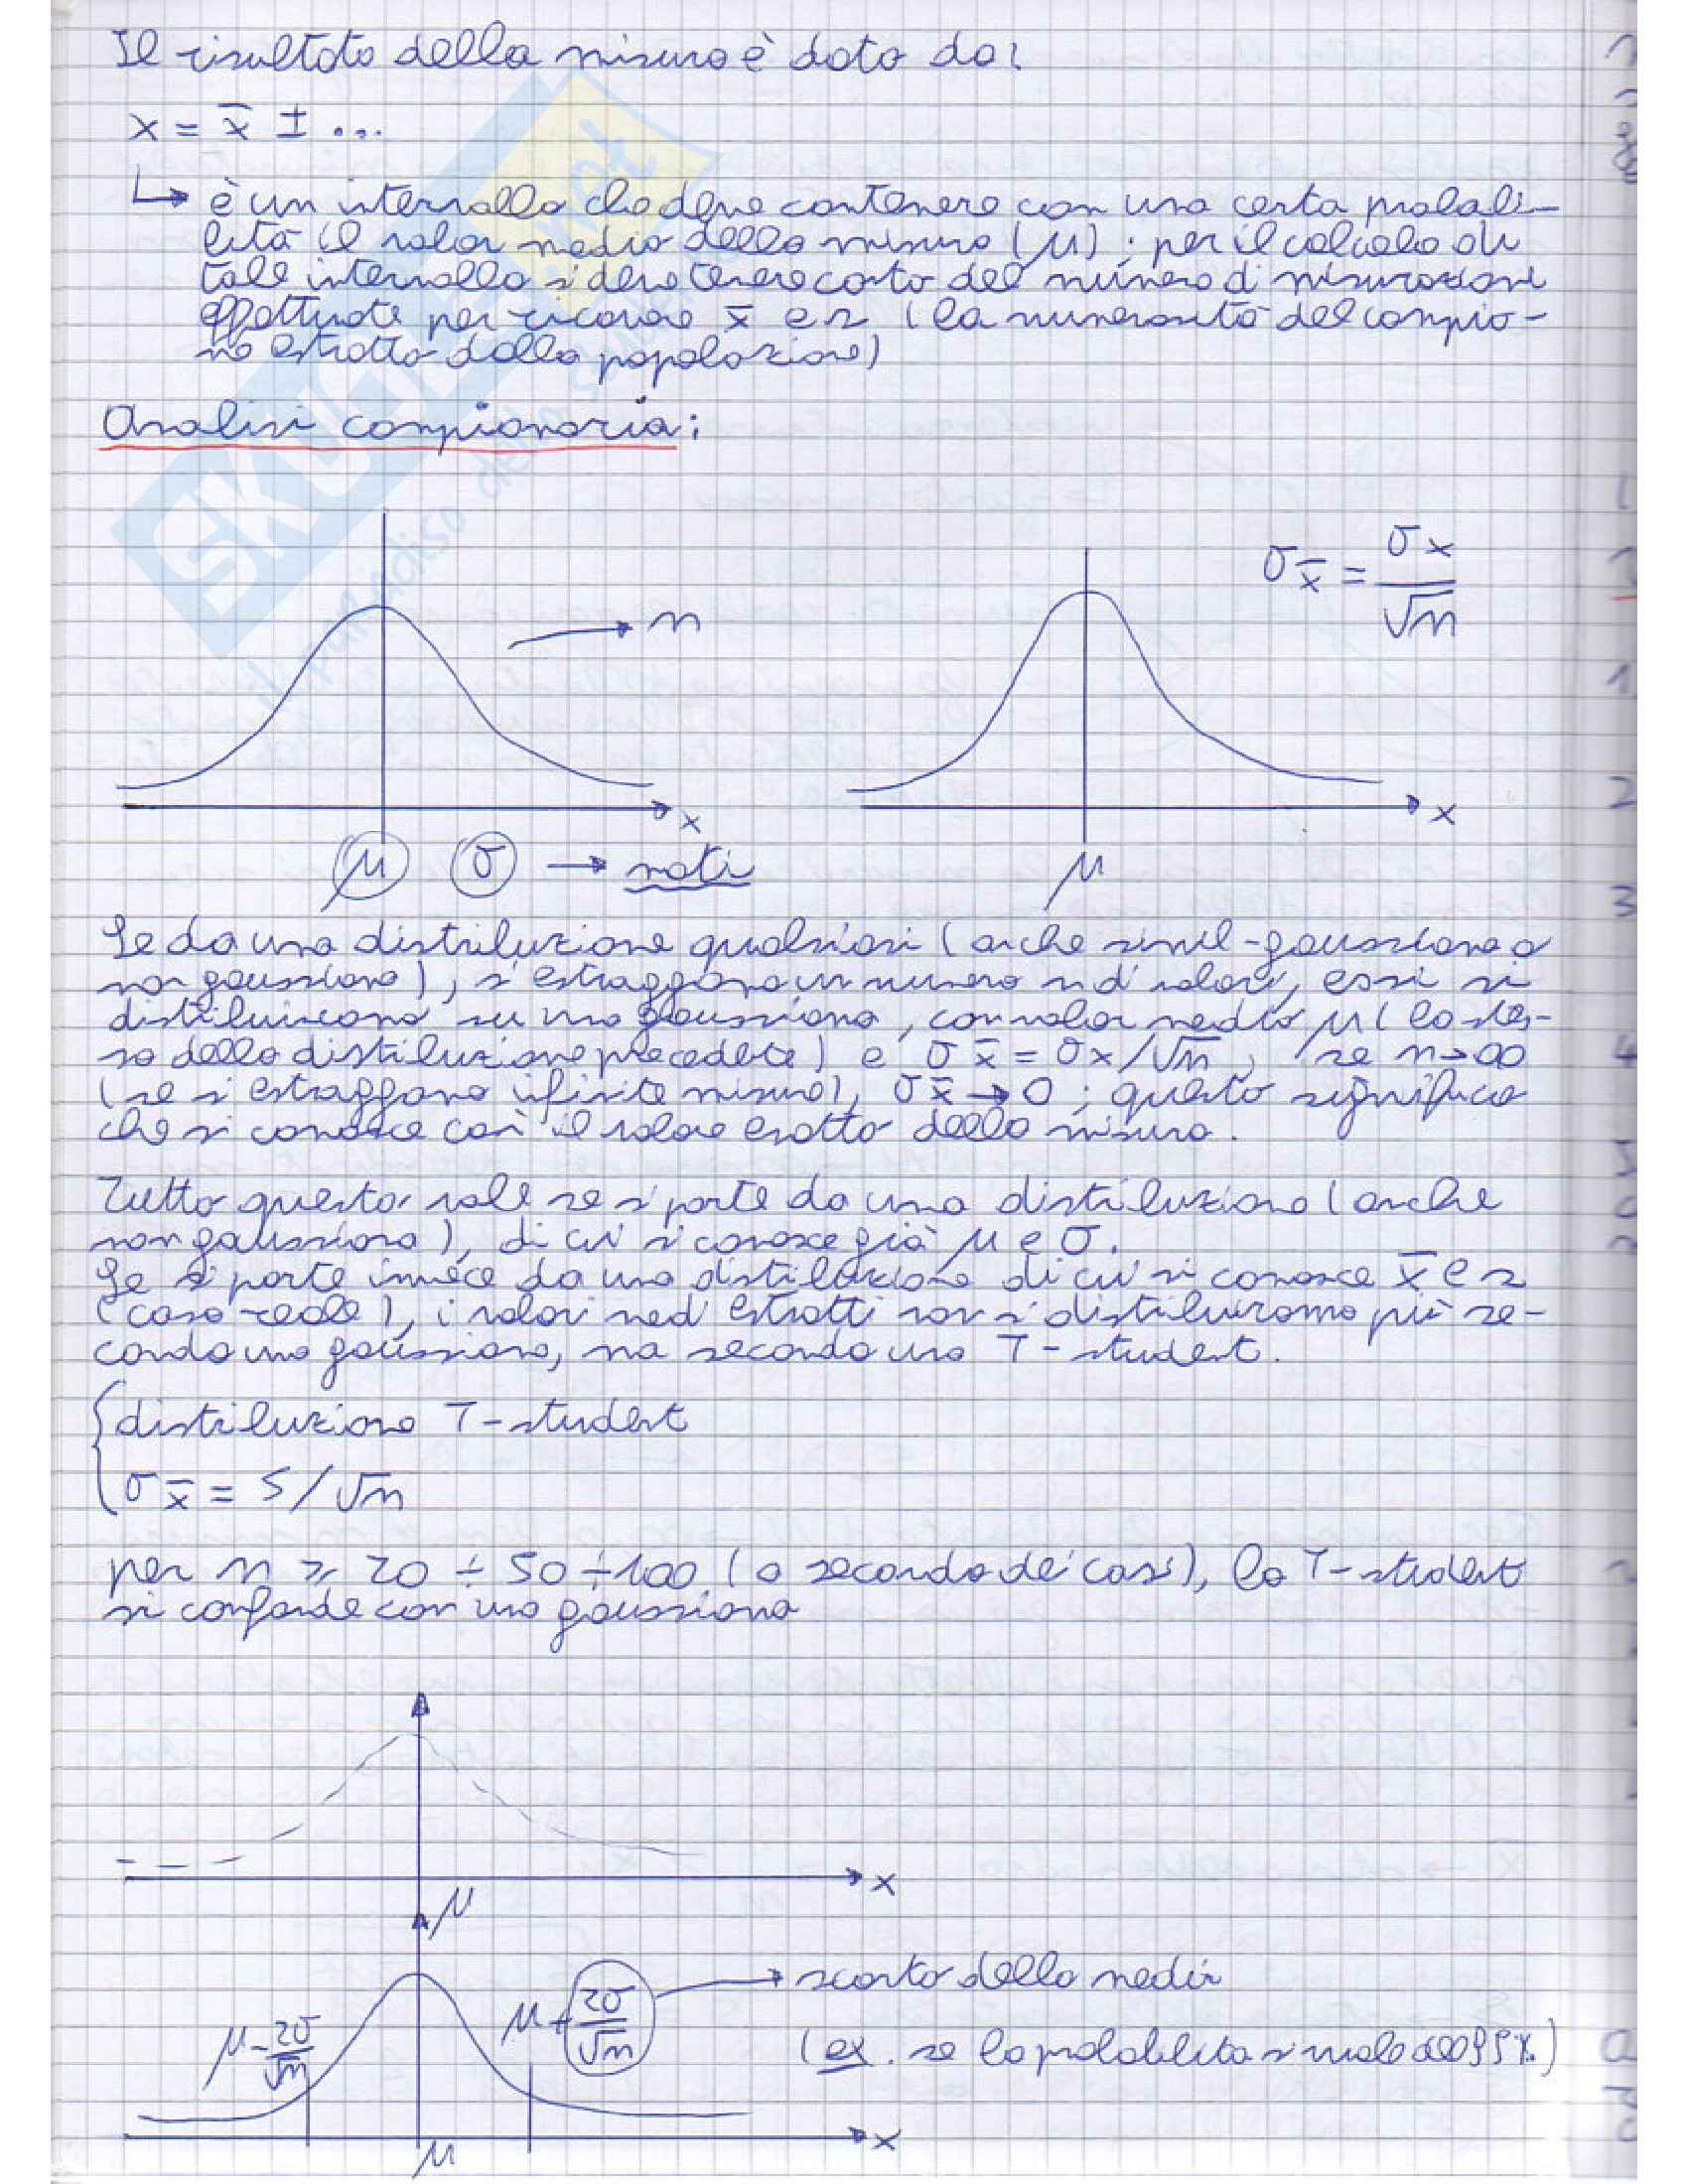 Il risultato della misura è dato da:
x = x̄ ± ...
↳ è un intervallo che deve contenere con una certa probabi-
lità il valor medio della misura (μ); per il calcolo di
tale intervallo si deve tenere conto del numero di misurazioni
effettuate per ricavare x̄ e s (la numerosità del campio-
ne estratto dalla popolazione)
Analisi campionaria:
σx̄ = σx / √n
→ n
x
x
μ σ → noti
μ
Se da una distribuzione qualsiasi (anche simil-gaussiana o
non gaussiana), si estraggono un numero n di valori, essi si
distribuiscono su una gaussiana, con valor medio μ (lo stes-
so della distribuzione precedente) e σx̄ = σx/√n, se n→∞
(se si estraggono infinite misure), σx̄→0; questo significa
che si conosce così il valore esatto della misura.
Tutto questo vale se si parte da una distribuzione (anche
non gaussiana), di cui si conosce già μ e σ.
Se si parte invece da una distribuzione di cui si conosce x̄ e s
(caso reale), i valori medi estratti non si distribuiranno più se-
condo una gaussiana, ma secondo una T-student.
distribuzione T-student
σx̄ = S/√n
per n ≥ 20 ÷ 50 ÷ 100 (a seconda dei casi), la T-student
si confonde con una gaussiana
x
μ
μ - 2σ/√n
μ + 2σ/√n → scarto della media
(ex. se la probabilità si vuole del 95%)
x
μ
SKUOLA.net
il paradiso dello Studente